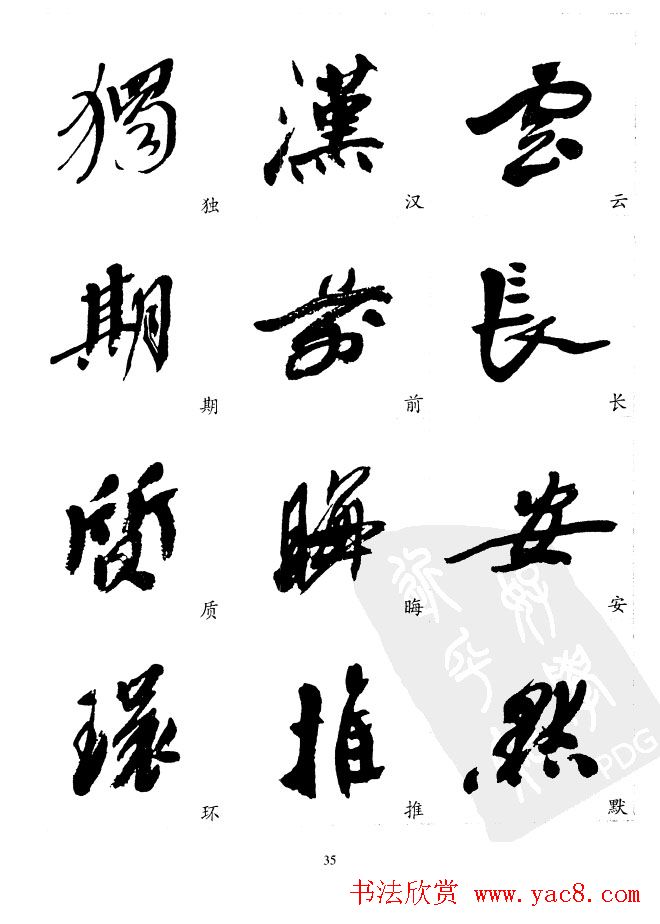 雲 漢 獨
云 汉 独
長 前 期
长 前 期
安 晦 質
安 晦 质
默 推 環
默 推 环
35
书法欣赏 www.yac8.com
PDG